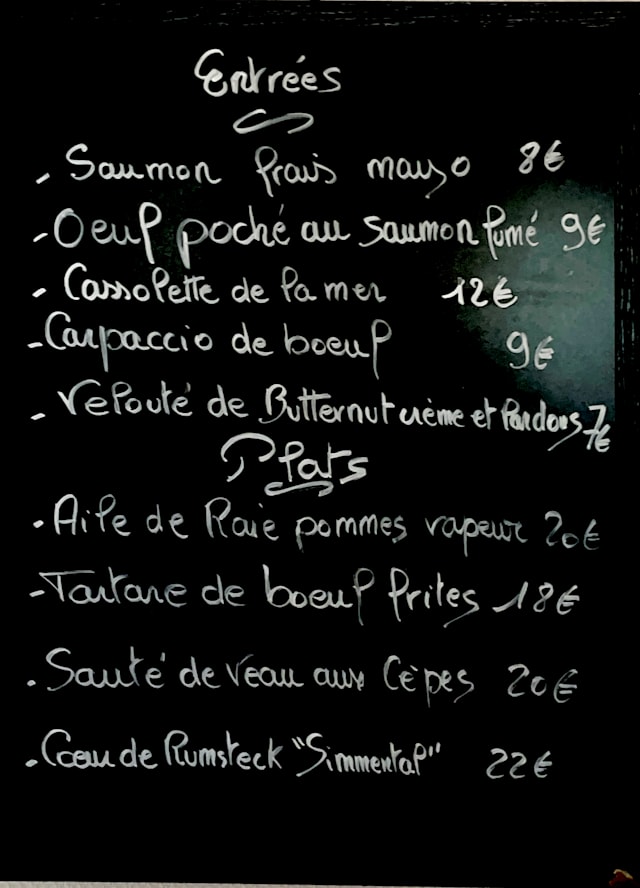 Entrées
- Saumon frais mayo 8€
- Oeuf poché au saumon fumé 9€
- Cassolette de la mer 12€
- Carpaccio de boeuf 9€
- Velouté de Butternut crème et lardons 7€
Plats
- Aile de Raie pommes vapeur 20€
- Tartare de boeuf frites 18€
- Sauté de Veau aux Cèpes 20€
- Coeur de Rumsteck "Simmental" 22€